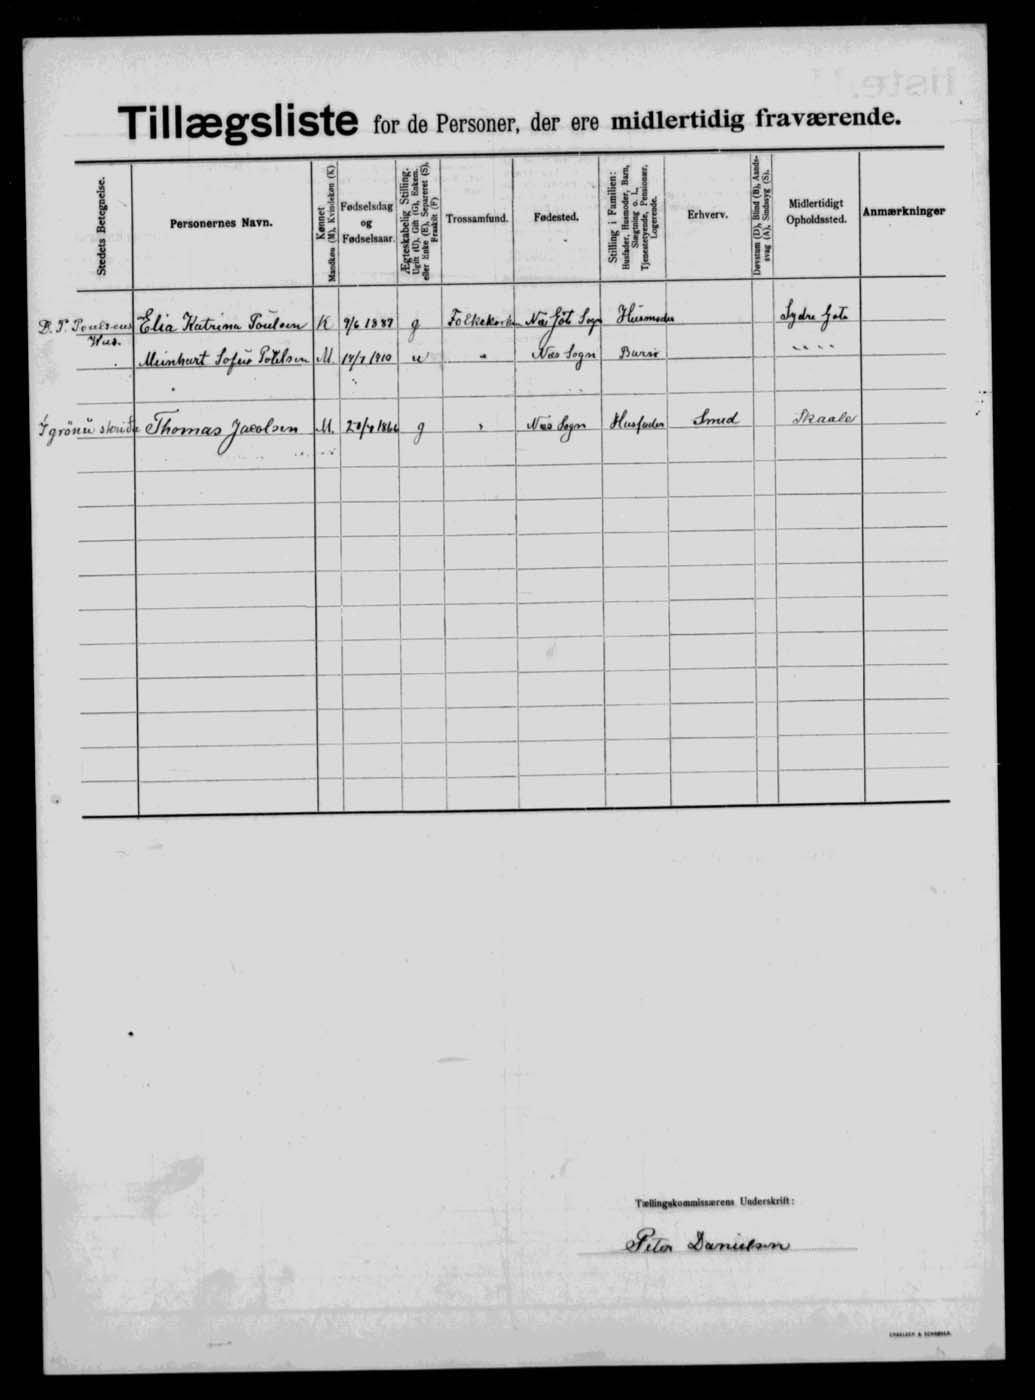 Tillægsliste for de Personer, der ere midlertidig fraværende.
Stedets Betegnelse.
Personernes Navn.
Kønnet
Mandkøn (M), Kvindekøn (K)
Fødselsdag
og
Fødselsaar.
Ægteskabelig Stilling.
Ugift (U), Gift (G), Enkem.
eller Enke (E), Separeret (S),
Fraskilt (F)
Trossamfund.
Fødested.
Stilling i Familien:
Husfader, Husmoder, Barn,
Slægtning o. l.,
Tjenestetyende, Pensionær,
Logerende.
Erhverv.
Døvstum (D), Blind (B), Aands-
svag (A), Sindssyg (S).
Midlertidigt
Opholdssted.
Anmærkninger
D. P. Poulsens Elia Katrina Poulsen K 9/6 1887 g Folkekirken Sogn Husmoder Sydre
Hus.
Meinhart Sofus M. 1910 u " Næs Sogn Barn " " " "
Thomas Jacobsen M. 1866 g " Næs Sogn Husfader Smed Skaale
Tællingskommissærens Underskrift:
Peter Danielsen